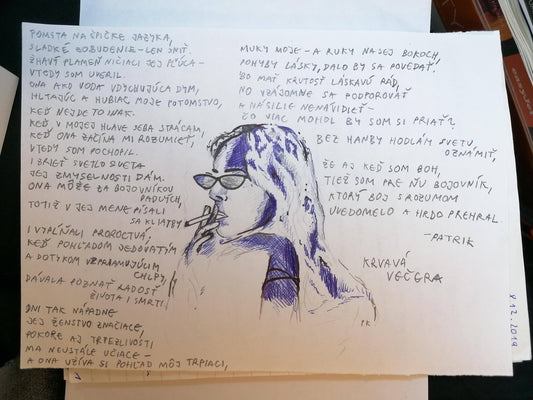 POMSTA NA ŠPIČKE JAZYKA,
SLADKÉ ZOBUDENIE – LEN SNIŤ.
ŽHAVÝ PLAMEŇ NIČIACI JEJ PĽÚCA –
VTEDY SOM UVERIL.
ONA AKO VODA VDYCHUJÚCA DYM,
HLTAJÚC A HUBIAC MOJE POTOMSTVO,
KEĎ NEJDE TO INAK.
KEĎ V MOJEJ HLAVE SEBA STRÁCAM,
KEĎ ONA ZAČÍNA MI ROZUMIEŤ,
VTEDY SOM POCHOPIL.
I ZRIEŤ SVETLO SVETA
JEJ ZMYSELNOSTI DÁM.
ONA MÔŽE ZA BOJOVNÍKOV
PADLÝCH,
TOTIŽ V JEJ MENE PÍSALI
SA KLIATBY
I VYPĹŇALI PROROCTVÁ,
KEĎ POHĽADOM JEDOVATÝM
A DOTYKOM VZPRIAMUJÚCIM
CHĹPKY,
DÁVALA POZNAŤ RADOSŤ
ŽIVOTA I SMRTI.
DNI TAK NÁPADNE
JEJ ŽENSTVO ZNAČIACE,
POKORE AJ TRPEZLIVOSTI
MA NEUSTÁLE UČIACE –
A ONA UŽÍVA SI POHĽAD MÔJ TRPIACI,
MUKY MOJE – A RUKY NA JEJ BOKOCH,
POHYBY LÁSKY, DALO BY SA POVEDAŤ.
BO MAŤ KRUTOSŤ LÁSKAVÚ RÁD,
NO VZÁJOMNE SA PODPOROVAŤ
A NÁSILIE NENÁVIDIEŤ –
ČO VIAC MOHOL BY SOM SI PRIAŤ?
BEZ HANBY HODLÁM SVETU
OZNÁMIŤ,
ŽE AJ KEĎ SOM BOH,
TIEŽ SOM PRE ŇU BOJOVNÍK,
KTORÝ BOJ S ROZUMOM
UVEDOMELO A HRDO PREHRAL.
– PATRIK
KRVAVÁ
VEČERA
PK
8.12.2019